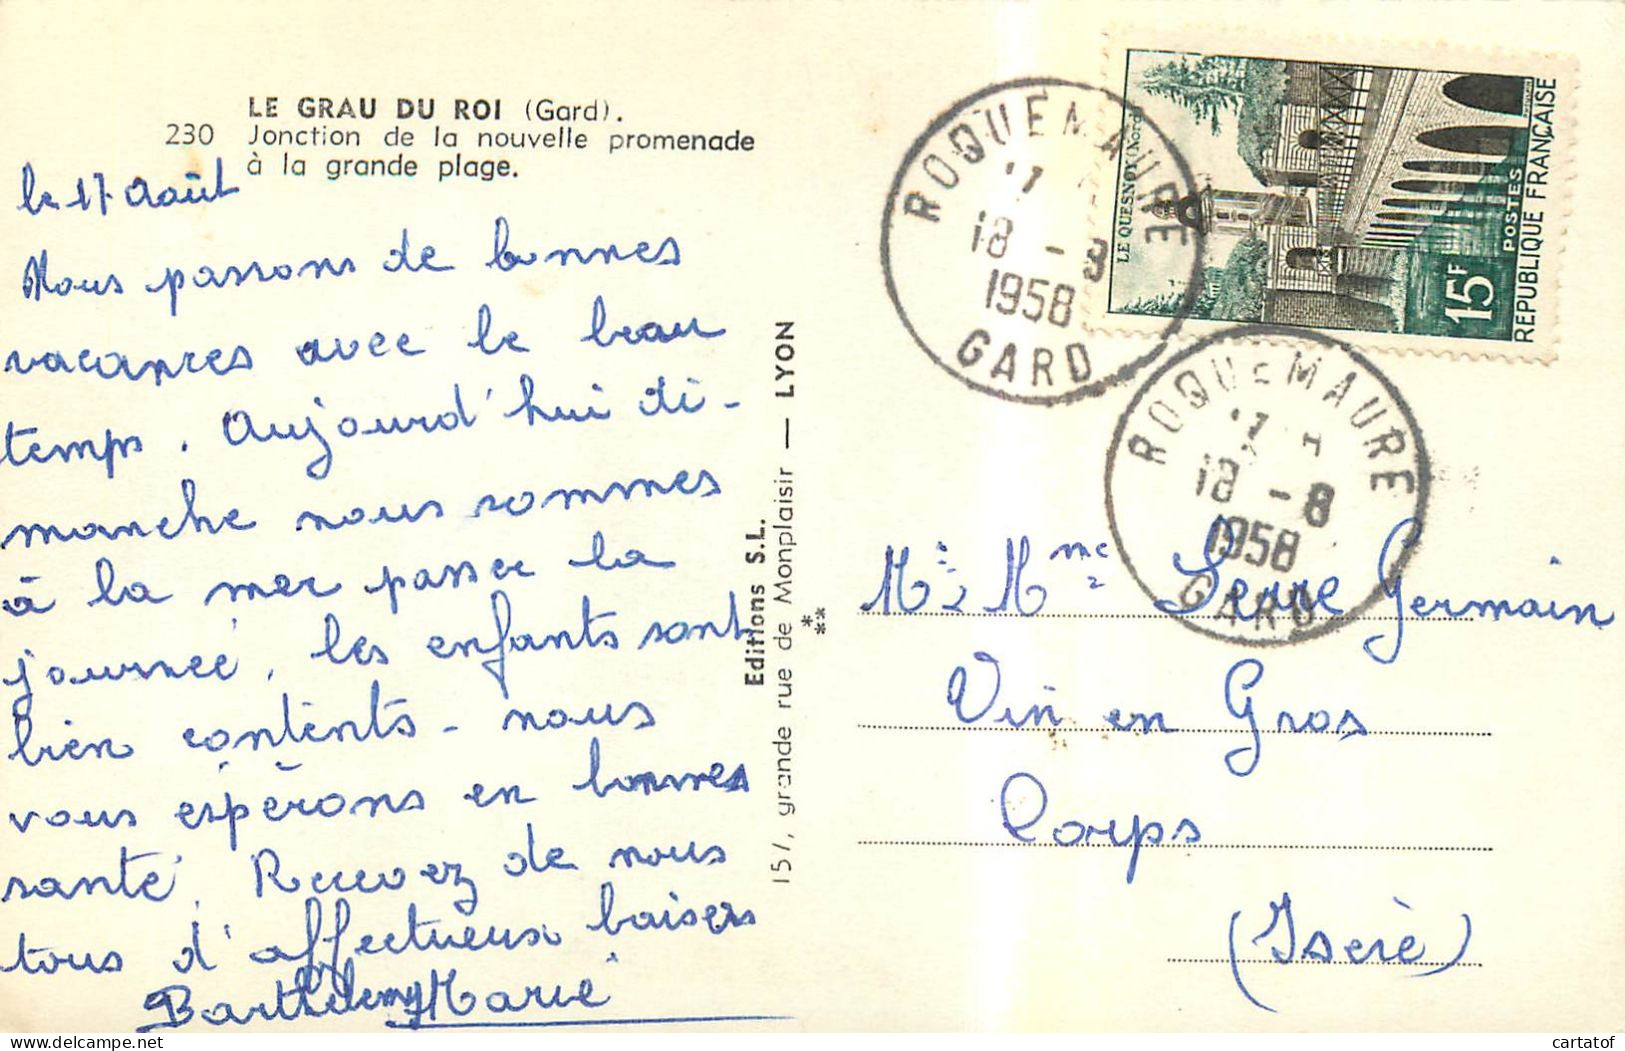 LE GRAU DU ROI (Gard).
230 Jonction de la nouvelle promenade
à la grande plage.
le 17 Août
Nous passons de bonnes
vacances avec le beau
temps. Aujourd'hui di-
manche nous sommes
à la mer passer la
journée, les enfants sont
bien contents - nous
vous espérons en bonnes
santé. Recevez de nous
tous d'affectueux baisers
Barthélemy Marie
Editions S.L.
157, grande rue de Monplaisir — LYON
ROQUEMAURE
18 - 8
1958
GARD
ROQUEMAURE
18 - 8
1958
GARD
LE QUESNOY (Nord)
15F
POSTES
REPUBLIQUE FRANÇAISE
Mr & Mme Serre Germain
Vin en Gros
Corps
(Isère)
cartatof